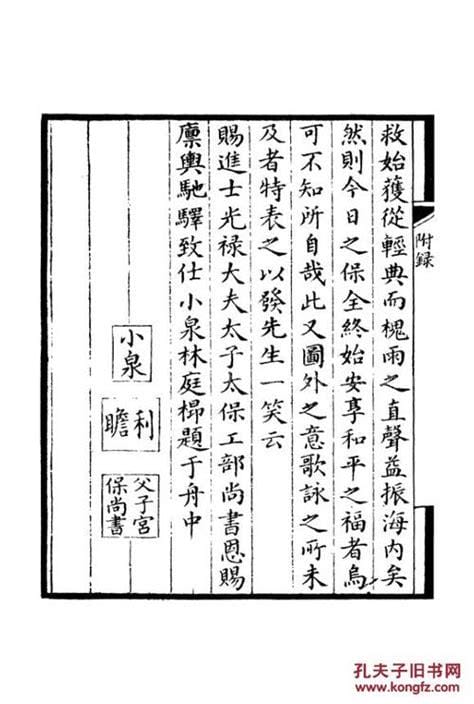 附録
救始獲從輕典而槐雨之直聲益振海内矣
然則今日之保全終始安享和平之福者烏
可不知所自哉此又圖外之意歌詠之所未
及者特表之以發先生一笑云
賜進士光禄大夫太子太保工部尚書恩賜
廪輿馳驛致仕小泉林庭㭿題于舟中
小泉
利瞻
父子宫保尚書
孔夫子旧书网
www.kongfz.com